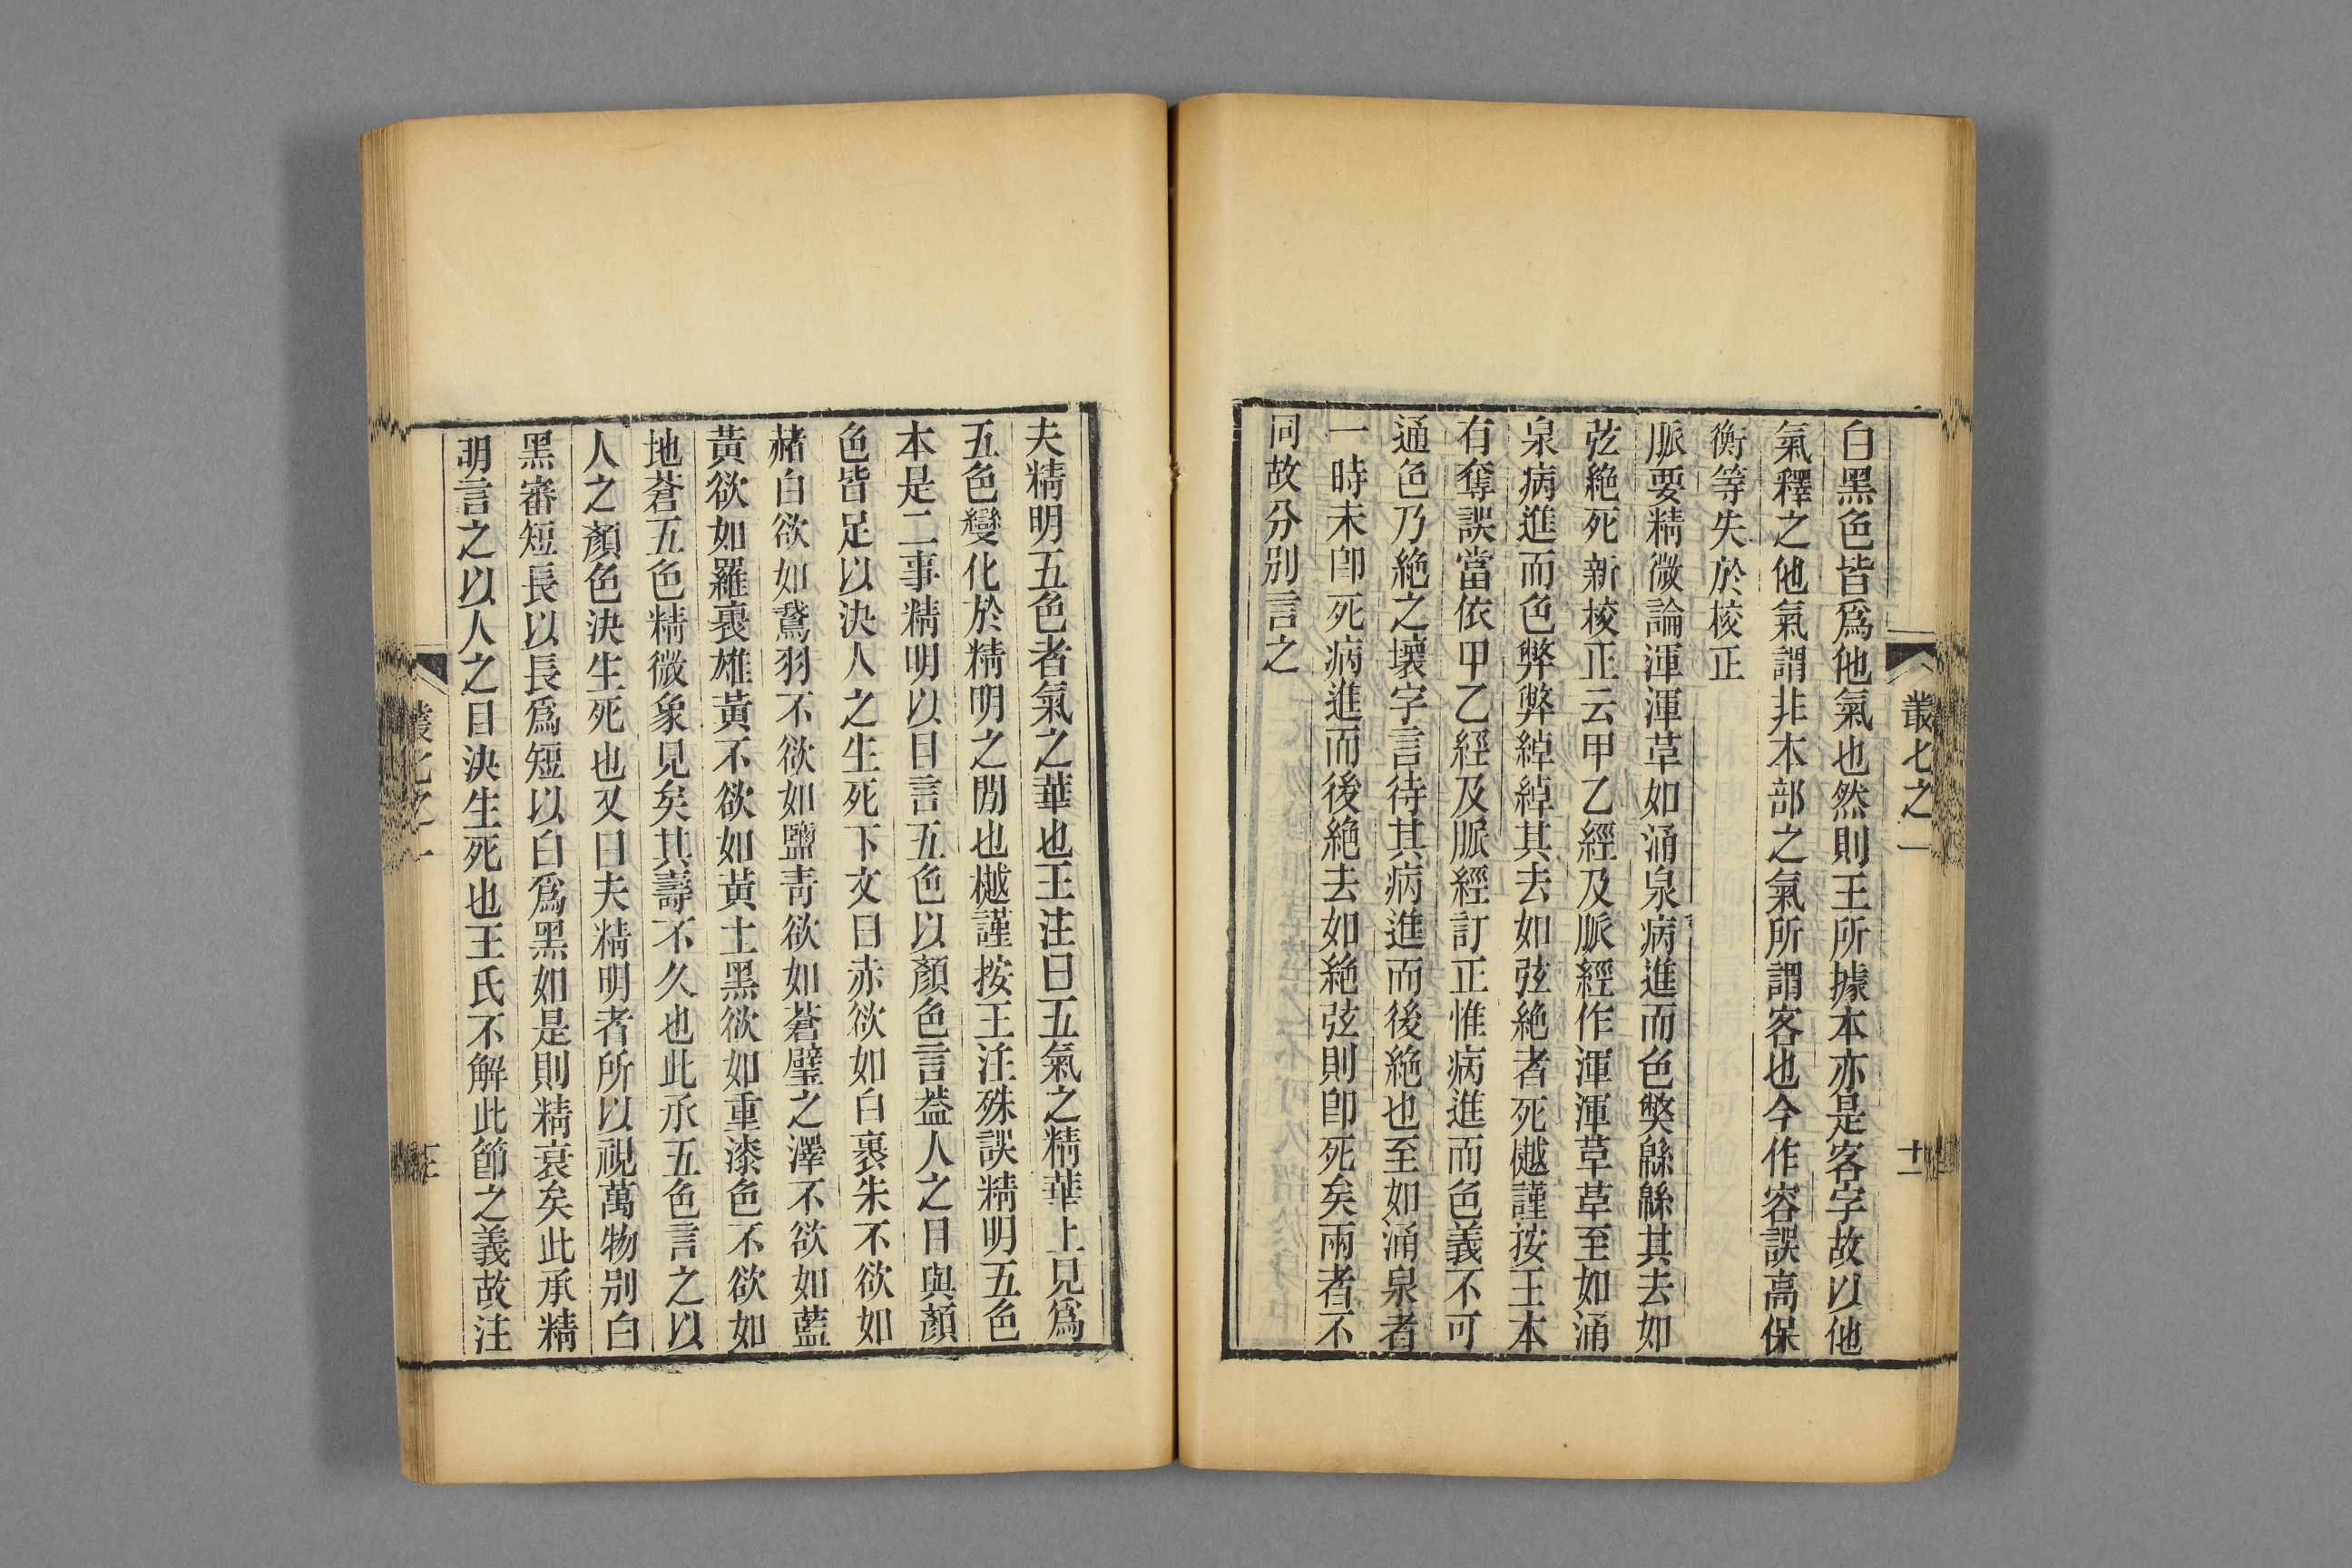 叢七之一
十一
白黑色皆爲他氣也然則王所據本亦是客字故以他
氣釋之他氣謂非本部之氣所謂客也今作容誤高保
衡等失於校正
脈要精微論渾渾革如涌泉病進而色獘緜緜其去如
弦絶死新校正云甲乙經及脈經作渾渾革革至如涌
泉病進而色弊弊綽綽其去如弦絶者死樾謹按王本
有奪誤當依甲乙經及脈經訂正惟病進而色義不可
通色乃絶之壞字言待其病進而後絶也至如涌泉者
一時未卽死病進而後絶去如絶弦則卽死矣兩者不
同故分別言之
夫精明五色者氣之華也王注曰五氣之精華上見爲
五色變化於精明之閒也樾謹按王注殊誤精明五色
本是二事精明以目言五色以顏色言葢人之目與顏
色皆足以決人之生死下文曰赤欲如白裹朱不欲如
赭白欲如鵞羽不欲如鹽靑欲如蒼璧之澤不欲如藍
黃欲如羅裹雄黃不欲如黃土黑欲如重漆色不欲如
地蒼五色精微象見矣其壽不久也此承五色言之以
人之顏色決生死也又曰夫精明者所以視萬物別白
黑審短長以長爲短以白爲黑如是則精衰矣此承精
明言之以人之目決生死也王氏不解此節之義故注
叢七之一